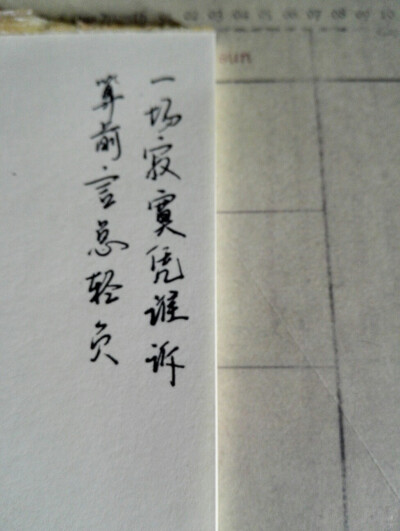 一场寂寞凭谁诉
算前言总轻负
02 03 04 05 06 07 08 09 10
sun